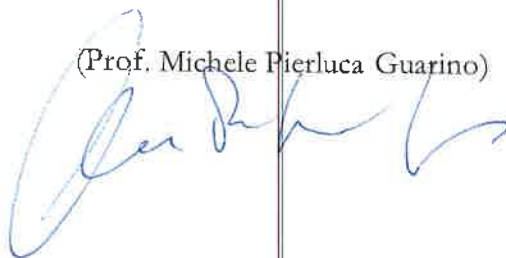 (Prof. Michele Pierluca Guarino)